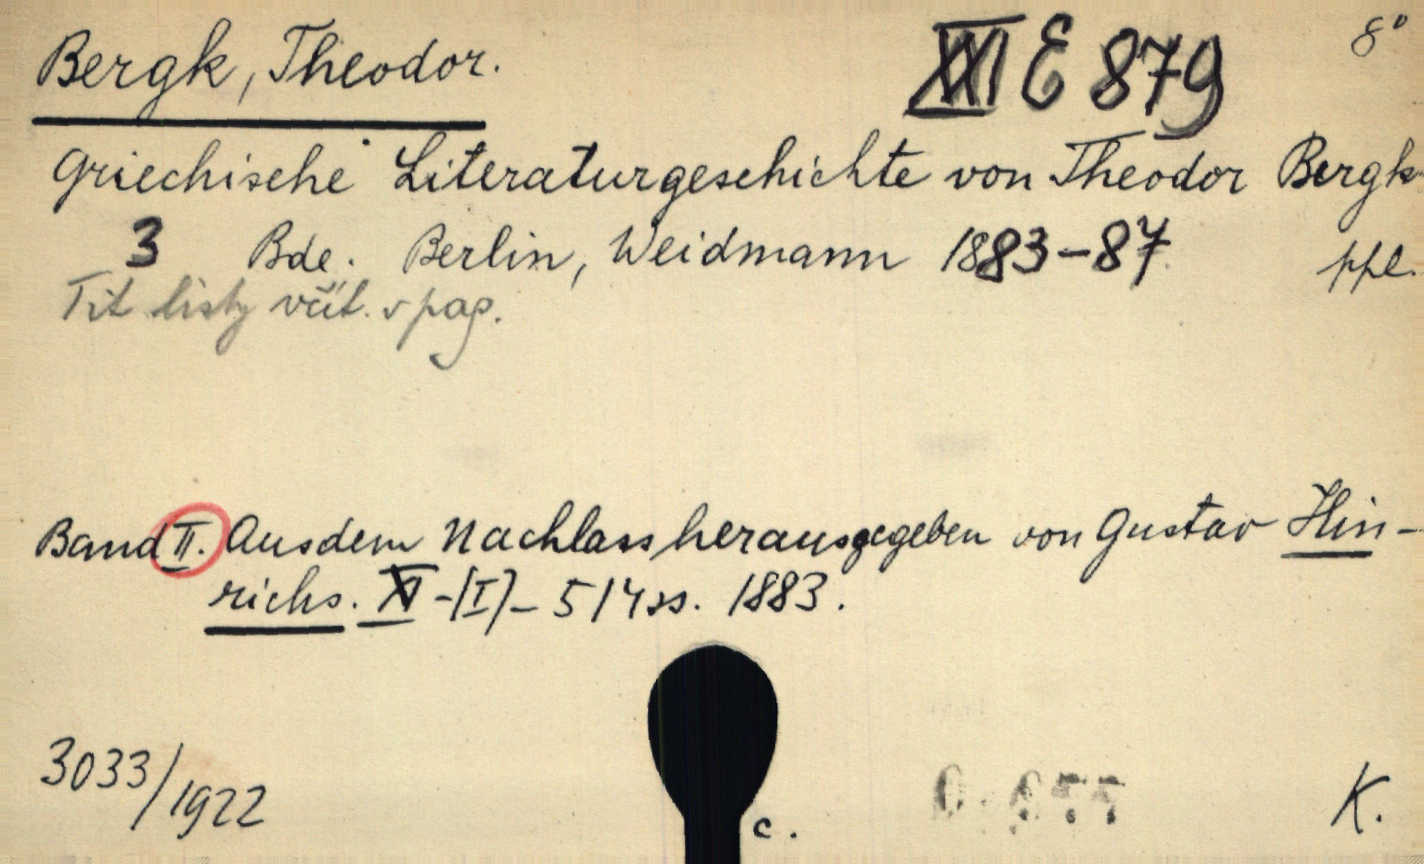 Bergk, Theodor.
XXI E 879
8°
Griechische Literaturgeschichte von Theodor Bergk
3 Bde. Berlin, Weidmann 1883-87.
ppl.
Tit listy včít. v pag.
Band II. Aus dem Nachlass herausgegeben von Gustav Hin-
richs. XI-[I]-514 ss. 1883.
3033/1922
c.
K.